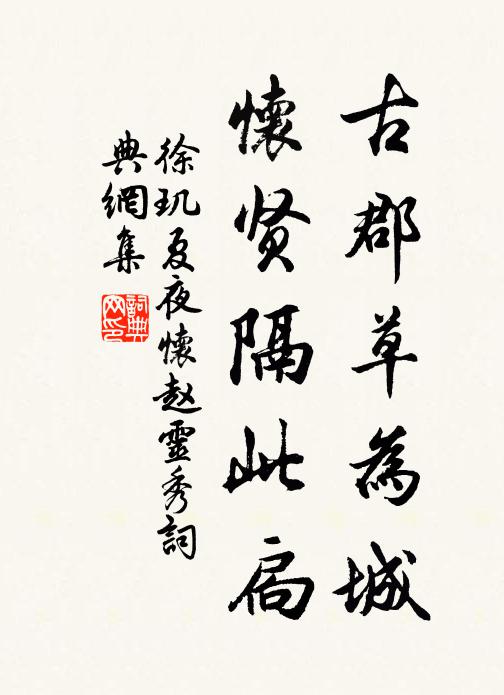 古郡草為城
懷贤隔此扃
徐玑夏夜懷赵靈秀詞
典網集
詞典网印